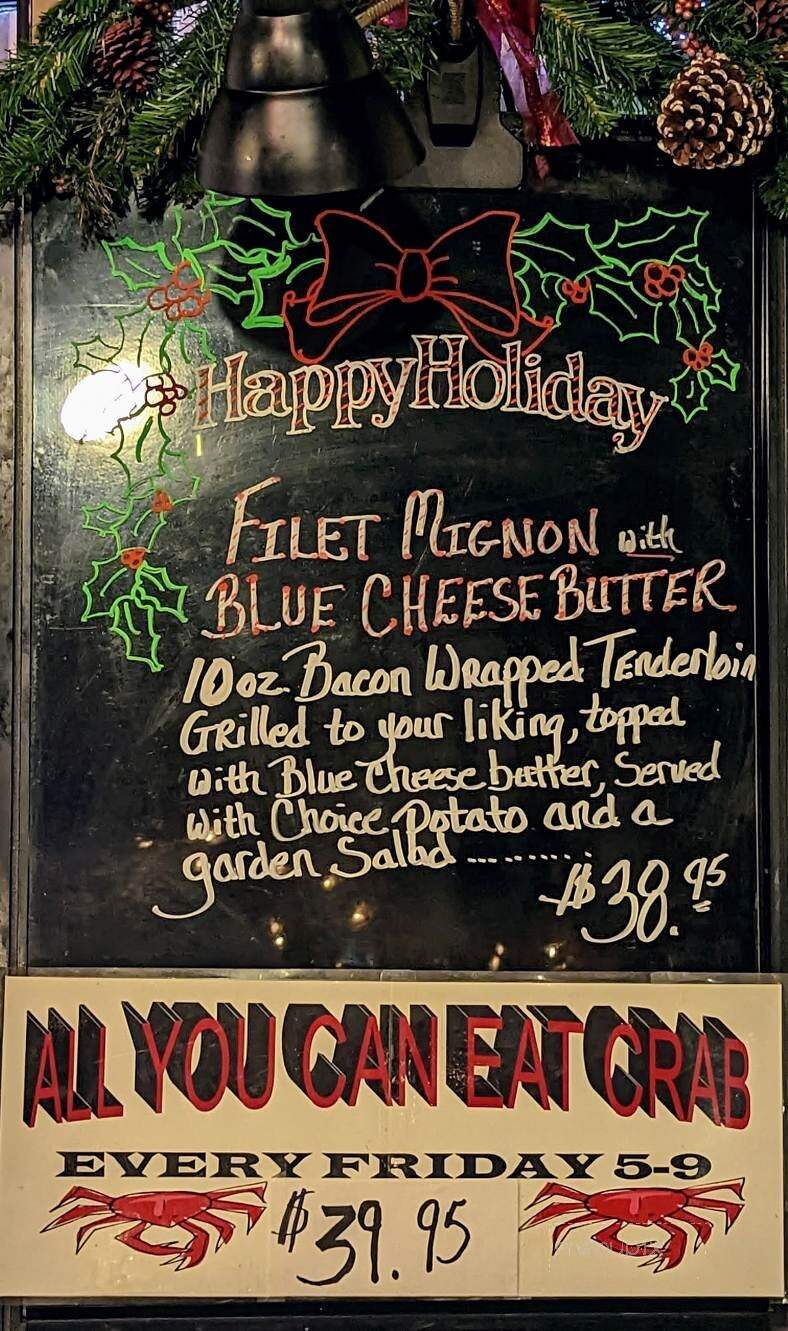 Happy Holiday
FILET MIGNON with
BLUE CHEESE BUTTER
10 oz. Bacon Wrapped Tenderloin
Grilled to your liking, topped
with Blue Cheese butter, Served
with Choice Potato and a
garden Salad ..........
$38.95
ALL YOU CAN EAT CRAB
EVERY FRIDAY 5-9
$39.95